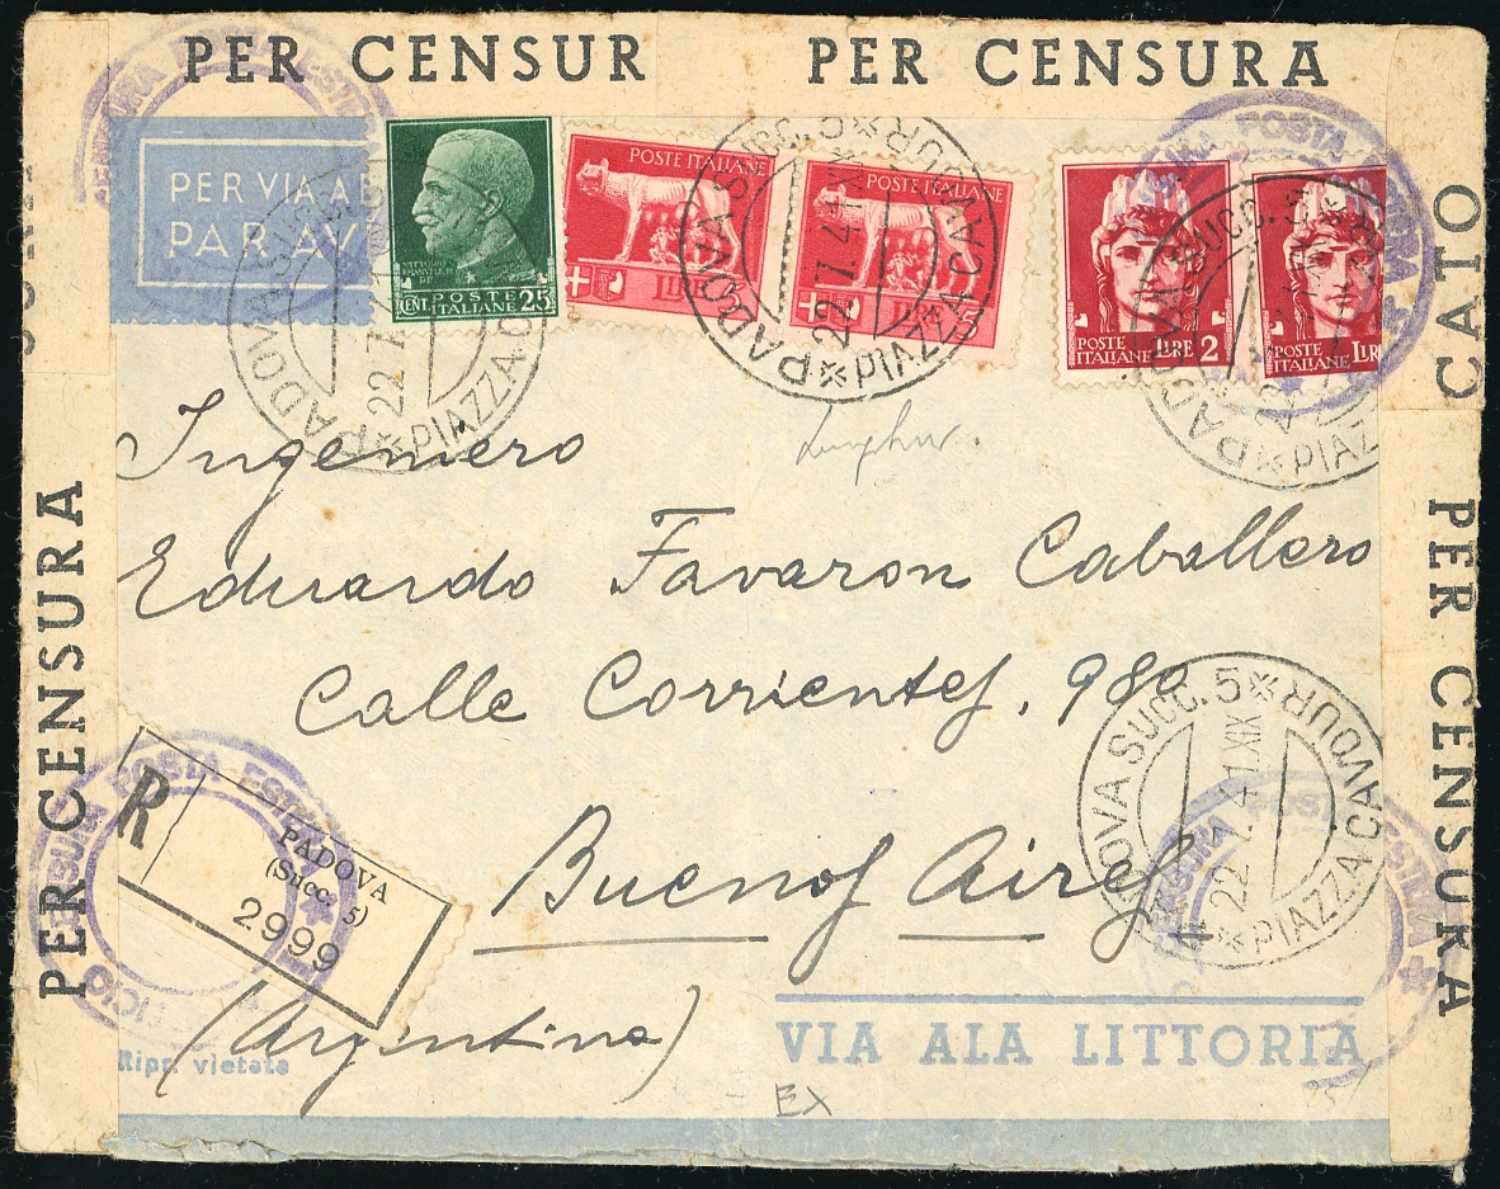 PER CENSUR PER CENSURA
PER VIA A
PAR AV
POSTE
ITALIANE
CENT. 25
POSTE ITALIANE
LIRE 5
POSTE ITALIANE
LIRE 5
POSTE
ITALIANE LIRE 2
POSTE
ITALIANE LIR
PADOVA SUCC. 5 * PIAZZA CAVOUR *
22.7.41.XIX
CATO
PER CENSURA
PER CENSURA
Ingeniero
Eduardo Favaron Caballero
Calle Corrientes, 980
Buenos Aires
(Argentina)
R
PADOVA
(Succ. 5)
2999
CENSURA POSTA ESTERA
OVA SUCC. 5 * PIAZZA CAVOUR *
22.7.41.XIX
VIA ALA LITTORIA
Ripr. vietata
EX